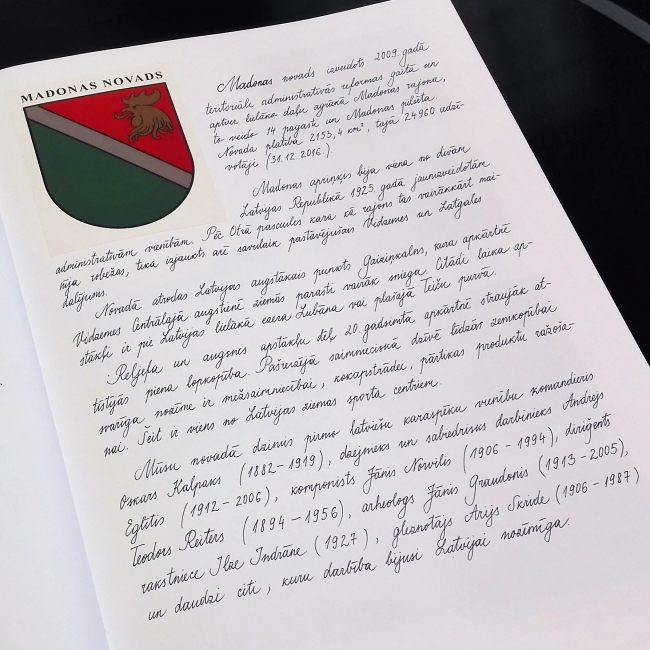 MADONAS NOVADS
Madonas novads izveidots 2009. gadā
teritoriāli administratīvās reformas gaitā un
aptver lielāko daļu agrākā Madonas rajona,
to veido 14 pagasti un Madonas pilsēta.
Novada platība 2153,4 km², tajā 24960 iedzī-
votāji (31.12.2016.).
Madonas apriņķis bija viena no divām
Latvijas Republikā 1925. gadā jaunizveidotām
administratīvām vienībām. Pēc Otrā pasaules kara kā rajons tas vairākkārt mai-
nīja robežas, tika izjaukts arī savulaik pastāvējušais Vidzemes un Latgales
dalījums.
Novadā atrodas Latvijas augstākais punkts Gaiziņkalns, kura apkārtnē
Vidzemes Centrālajā augstienē ziemās parasti vairāk sniega. Citādi laika ap-
stākļi ir pie Latvijas lielākā ezera Lubāna vai plašajā Teiču purvā.
Reljefa un augsnes apstākļu dēļ 20. gadsimtā apkārtnē straujāk at-
tīstījās piena lopkopība. Pašreizējā saimnieciskā dzīvē līdzās zemkopībai
svarīga nozīme ir mežsaimniecībai, kokapstrādei, pārtikas produktu ražoša-
nai. Šeit ir viens no Latvijas ziemas sporta centriem.
Mūsu novadā dzimis pirmo latviešu karaspēku vienību komandieris
Oskars Kalpaks (1882–1919), dzejnieks un sabiedrisks darbinieks Andrejs
Eglītis (1912–2006), komponists Jānis Norvilis (1906–1994), diriģents
Teodors Reiters (1894–1956), arheologs Jānis Graudonis (1913–2005),
rakstniece Ilze Indrāne (1927), gleznotājs Arijs Skride (1906–1987)
un daudzi citi, kuru darbība bijusi Latvijai nozīmīga.